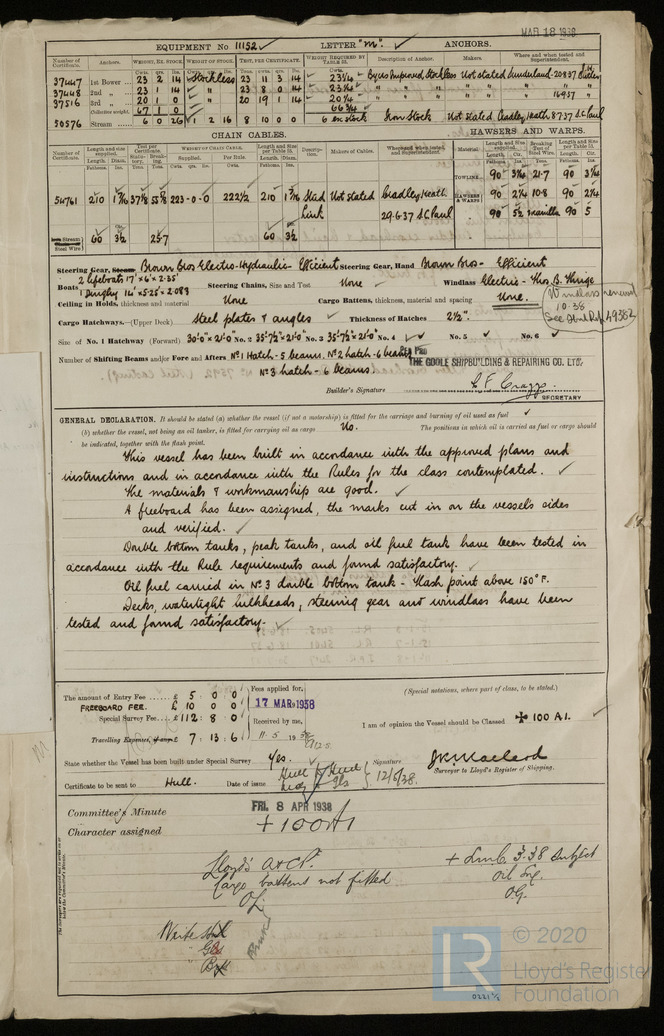 MAR 18 1938
EQUIPMENT No 11152 LETTER "M". ANCHORS.
Number of Certificate. Anchors. WEIGHT, EX. STOCK WEIGHT OF STOCK. TEST, PER CERTIFICATE. WEIGHT REQUIRED BY TABLE 53. Description of Anchor. Makers. Where and when tested and Superintendent.
37447 1st Bower 23 2 14 Stockless 23 11 3 14 23¼ Byers Improved Stockless Not stated Sunderland 20837 Butler
37448 2nd " 23 1 14 " " 23 8 0 14 23¼ " " " " "
37516 3rd " 20 1 0 " " 20 19 1 14 20¼ " " " " 16937
Collective weight. 67 1 0 66¾
50576 Stream 6 0 26 1 2 16 8 10 0 0 6 ex stock Iron Stock Not stated Cradley Heath 8737 S.C. Paul
CHAIN CABLES. HAWSERS AND WARPS.
Number of Certificate. Length and size supplied. Test per Certificate. WEIGHT OF CHAIN CABLE. Length and Size per Table 53. Description. Makers of Cables. When and when tested and Superintendent. Material. Length and Size supplied. Breaking Test of Steel Wire. Length and Size per Table 53.
TOWLINE 90 3¼ 21·7 90 3¼
54761 210 1 7/16 37⅛ 55⅝ 223-0-0 222½ 210 1 7/16 Stud Link Not stated Cradley Heath HAWSERS & WARPS 90 2¼ 10·8 90 2¼
29·6·37 S.C. Paul 90 5½ manilla 90 5
Stream Steel Wire 60 3½ 25·7 60 3½
Steering Gear, Steam Brown Bros Electro-Hydraulic - Efficient Steering Gear, Hand Brown Bros - Efficient
Boats 2 lifeboats 17' × 6' × 2·35' Steering Chains, Size and Test None Windlass Electric - Thos B. Thrige
1 Dinghy 14' × 5·25' × 2·083
Ceiling in Holds, thickness and material None Cargo Battens, thickness, material and spacing None.
Windlass renewed 10·38 See Hull Rpt 49382
Cargo Hatchways.-(Upper Deck) Steel plates & angles Thickness of Hatches 2½".
Size of No. 1 Hatchway (Forward) 30'-0" × 21'-0" No. 2 35'-7½" × 21'-0" No. 3 35'-7½" × 21'-0" No. 4 No. 5 No. 6
Number of Shifting Beams and/or Fore and Afters No 1 Hatch - 5 beams. No 2 hatch - 6 beams
No 3 hatch - 6 beams
Per Pro THE GOOLE SHIPBUILDING & REPAIRING CO. LTD.
Builder's Signature
SECRETARY
GENERAL DECLARATION. It should be stated (a) whether the vessel (if not a motorship) is fitted for the carriage and burning of oil used as fuel
(b) whether the vessel, not being an oil tanker, is fitted for carrying oil as cargo No. The positions in which oil is carried as fuel or cargo should
be indicated, together with the flash point.
This vessel has been built in accordance with the approved plans and
instructions and in accordance with the Rules for the class contemplated.
The materials & workmanship are good.
A freeboard has been assigned, the marks cut in on the vessels sides
and verified.
Double bottom tanks, peak tanks, and oil fuel tank have been tested in
accordance with the Rule requirements and found satisfactory.
Oil fuel carried in No 3 double bottom tank - Flash point above 150°F.
Decks, watertight bulkheads, steering gear and windlass have been
tested and found satisfactory.
The amount of Entry Fee £ 5 : 0 : 0 Fees applied for, (Special notations, where part of class, to be stated.)
FREEBOARD FEE. £ 10 0 0 17 MAR 1938
Special Survey Fee £112 : 8 : 0 Received by me, I am of opinion the Vessel should be Classed + 100 A1.
Travelling Expenses, £ 7 : 13 : 6 11·5 1938
State whether the Vessel has been built under Special Survey Yes. Signature
Surveyor to Lloyd's Register of Shipping.
Certificate to be sent to Hull. Date of issue 12/5/38.
Committee's Minute FRI. 8 APR 1938
Character assigned +100A1
Lloyd's A&CP. + LMC 3·38 Subject
Cargo battens not fitted Oil Eng.
O.G.
Write
LR
© 2020
Lloyd's Register
Foundation